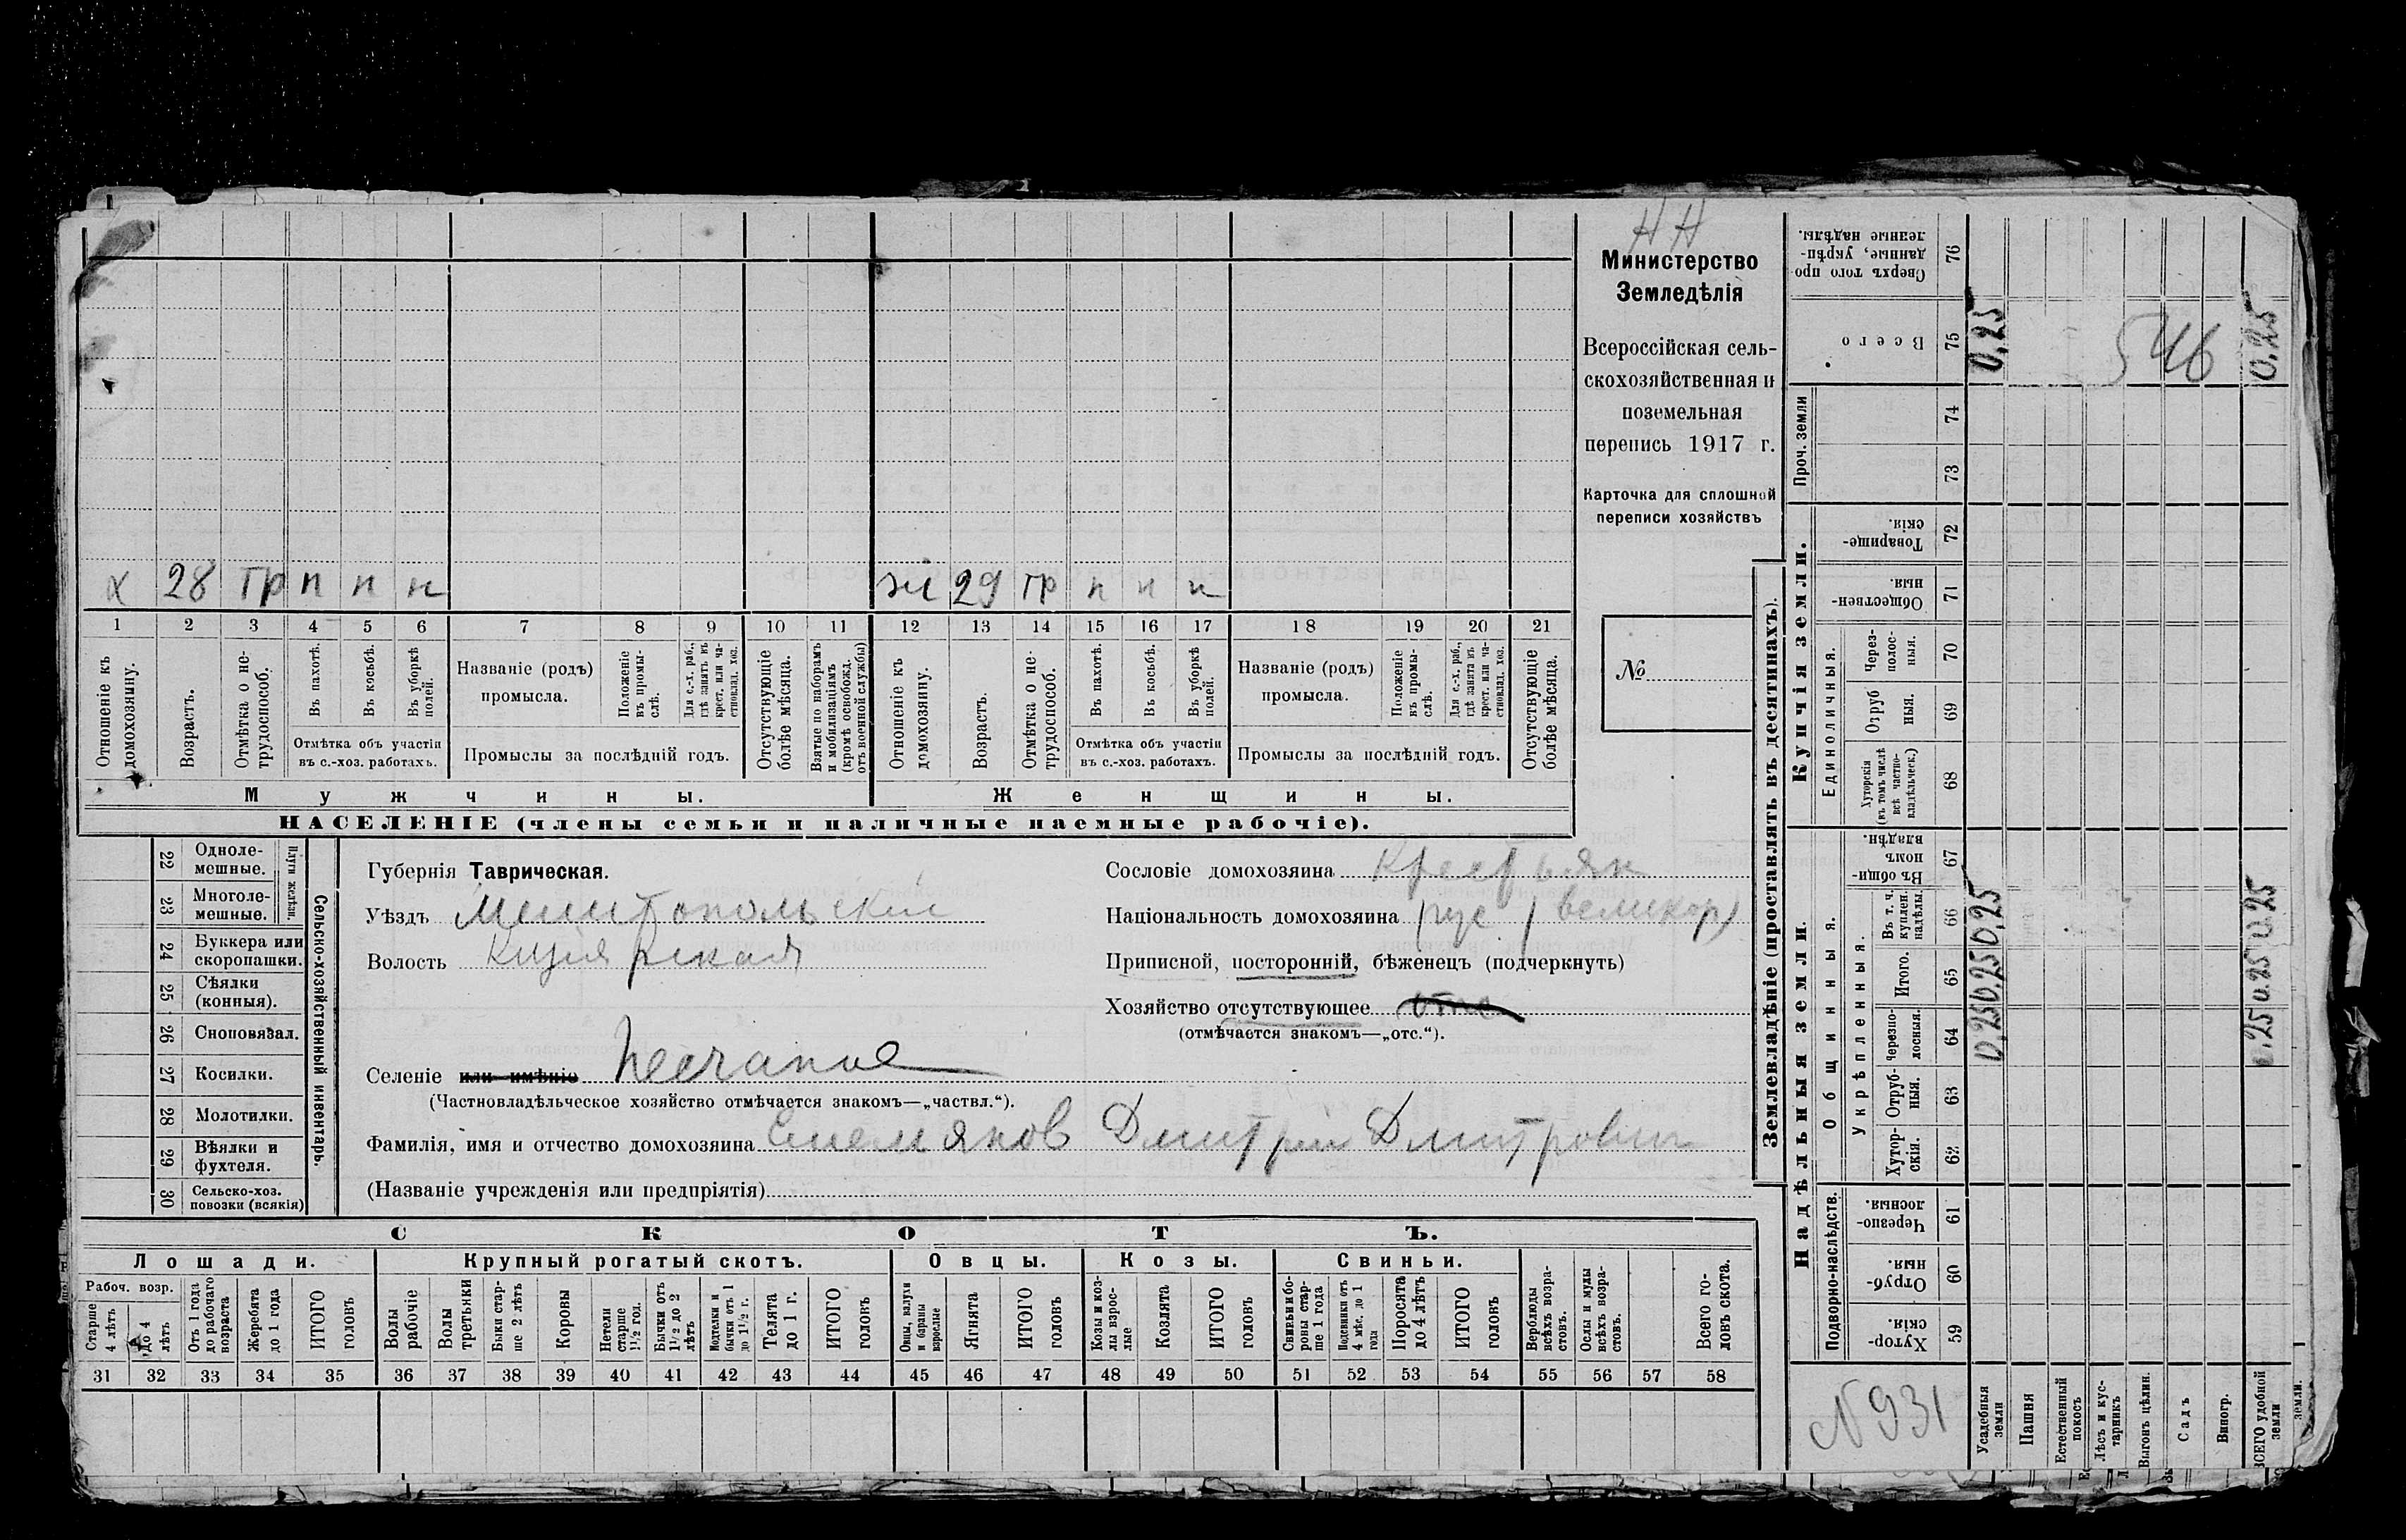 НН
Министерство
Земледѣлія
Всероссійская сель-
скохозяйственная и
поземельная
перепись 1917 г.
Карточка для сплошной
переписи хозяйствъ
№
х 28 гр п п н
ж 29 гр н н н
1 2 3 4 5 6 7 8 9 10 11 12 13 14 15 16 17 18 19 20 21
Отношеніе къ домохозяину.
Возрастъ.
Отмѣтка о не-трудоспособ.
Въ пахотѣ.
Въ косьбѣ.
Въ уборкѣ полей.
Отмѣтка объ участіи
въ с.-хоз. работахъ.
Названіе (родъ)
промысла.
Положеніе въ промы-слѣ.
Для с.-х. раб., гдѣ занятъ въ крест. или ча-стновлад. хоз.
Промыслы за послѣдній годъ.
Отсутствующіе болѣе мѣсяца.
Взятые по наборамъ и мобилизаціямъ (кромѣ освобожд. отъ военной службы)
Отношеніе къ домохозяину.
Возрастъ.
Отмѣтка о не-трудоспособ.
Въ пахотѣ.
Въ косьбѣ.
Въ уборкѣ полей.
Отмѣтка объ участіи
въ с.-хоз. работахъ.
Названіе (родъ)
промысла.
Положеніе въ промы-слѣ.
Для с.-х. раб., гдѣ занята въ крест. или ча-стновлад. хоз.
Промыслы за послѣдній годъ.
Отсутствующіе болѣе мѣсяца.
Мужчины.
Женщины.
НАСЕЛЕНІЕ (члены семьи и наличные наемные рабочіе).
Сельско-хозяйственный инвентарь.
Плуги желѣзн.
22 Одноле-мешные.
23 Многоле-мешные.
24 Буккера или скоропашки.
25 Сѣялки (конныя).
26 Сноповязал.
27 Косилки.
28 Молотилки.
29 Вѣялки и фухтеля.
30 Сельско-хоз. повозки (всякія)
Губернія Таврическая.
Уѣздъ Мелитопольскій
Волость
Селеніе или имѣніе Песчаное
(Частновладѣльческое хозяйство отмѣчается знакомъ—„частвл.“).
Сословіе домохозяина Крестьян
Національность домохозяина рус (великор)
Приписной, посторонній, бѣженецъ (подчеркнуть)
Хозяйство отсутствующее отс
(отмѣчается знакомъ—„отс.“).
Фамилія, имя и отчество домохозяина Дмитрий Дмитрович
(Названіе учрежденія или предпріятія)
СКОТЪ.
Лошади.
Крупный рогатый скотъ.
Овцы.
Козы.
Свиньи.
Рабоч. возр.
Старше 4 лѣтъ
до 4 лѣтъ
Отъ 1 года до рабочаго возраста
Жеребята до 1 года
ИТОГО головъ
Волы рабочіе
Волы третьяки
Быки стар-ше 2 лѣтъ
Коровы
Нетели старше 1½ год.
Бычки отъ 1½ до 2 лѣтъ
Подтелки и бычки отъ 1 до 1½ г.
Телята до 1 г.
ИТОГО головъ
Овцы, валухи и бараны взрослые
Ягнята
ИТОГО головъ
Козы и коз-лы взрос-лые
Козлята
ИТОГО головъ
Свиньи и бо-ровы стар-ше 1 года
Подсвинки отъ 4 мѣс. до 1 года
Поросята до 4 лѣтъ
ИТОГО головъ
Верблюды всѣхъ возра-стовъ.
Ослы и мулы всѣхъ возра-стовъ.
Всего го-ловъ скота.
31 32 33 34 35 36 37 38 39 40 41 42 43 44 45 46 47 48 49 50 51 52 53 54 55 56 57 58
Землевладѣніе (проставлять въ десятинахъ).
Сверхъ того про-данные, укрѣп-ленные надѣлы. 76
Всего 75
0,25 546 0,25
Проч. земли
74
73
Купчія земли.
Товарище-скія. 72
Обществен-ныя. 71
Единоличныя.
Через-полос-ныя. 70
Отруб ныя. 69
Хуторскія (въ томъ числѣ всѣ частно-владѣльческ.) 68
Надѣльныя земли.
Общинныя.
Въ общи-номъ владѣн. 67
Укрѣпленныя.
Въ т. ч. куплен. надѣлы 66
Итого. 65
Черезпо-лосныя. 64
Отруб-ныя. 63
Хутор-скія. 62
0,25 0,25 0,25
0,25 0,25 0,25
Подворно-наслѣдств.
Черезпо-лосныя. 61
Отруб-ныя. 60
Хутор-скія. 59
N 931
Усадебныя земли
Пашня
Естественный покосъ
Лѣсъ и кус-тарникъ
Выгонъ цѣлин.
Садъ
Виногр.
ВСЕГО удобной земли
земли.